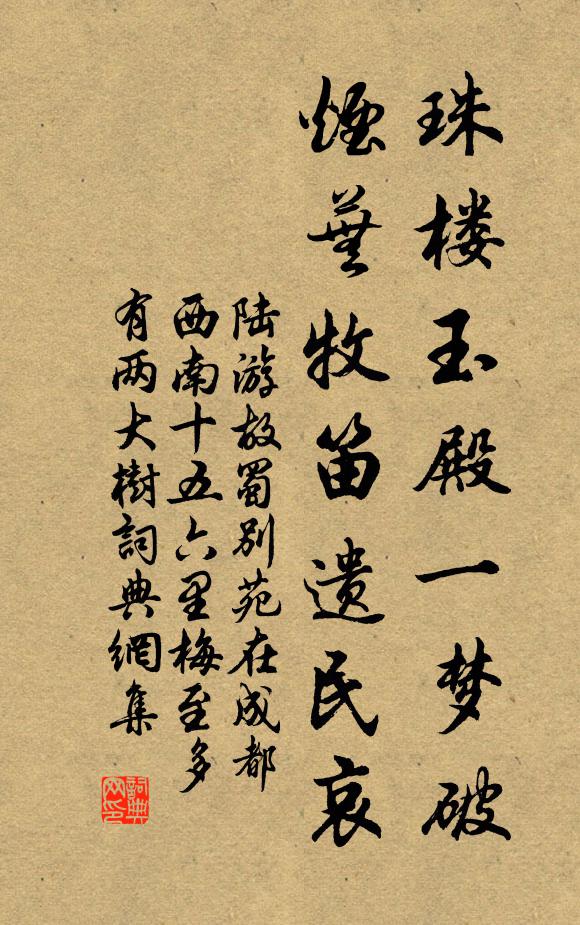 珠楼玉殿一梦破
煙蕪牧笛遗民哀
陆游故蜀别苑在成都
西南十五六里梅至多
有两大樹詞典網集
詞典网印